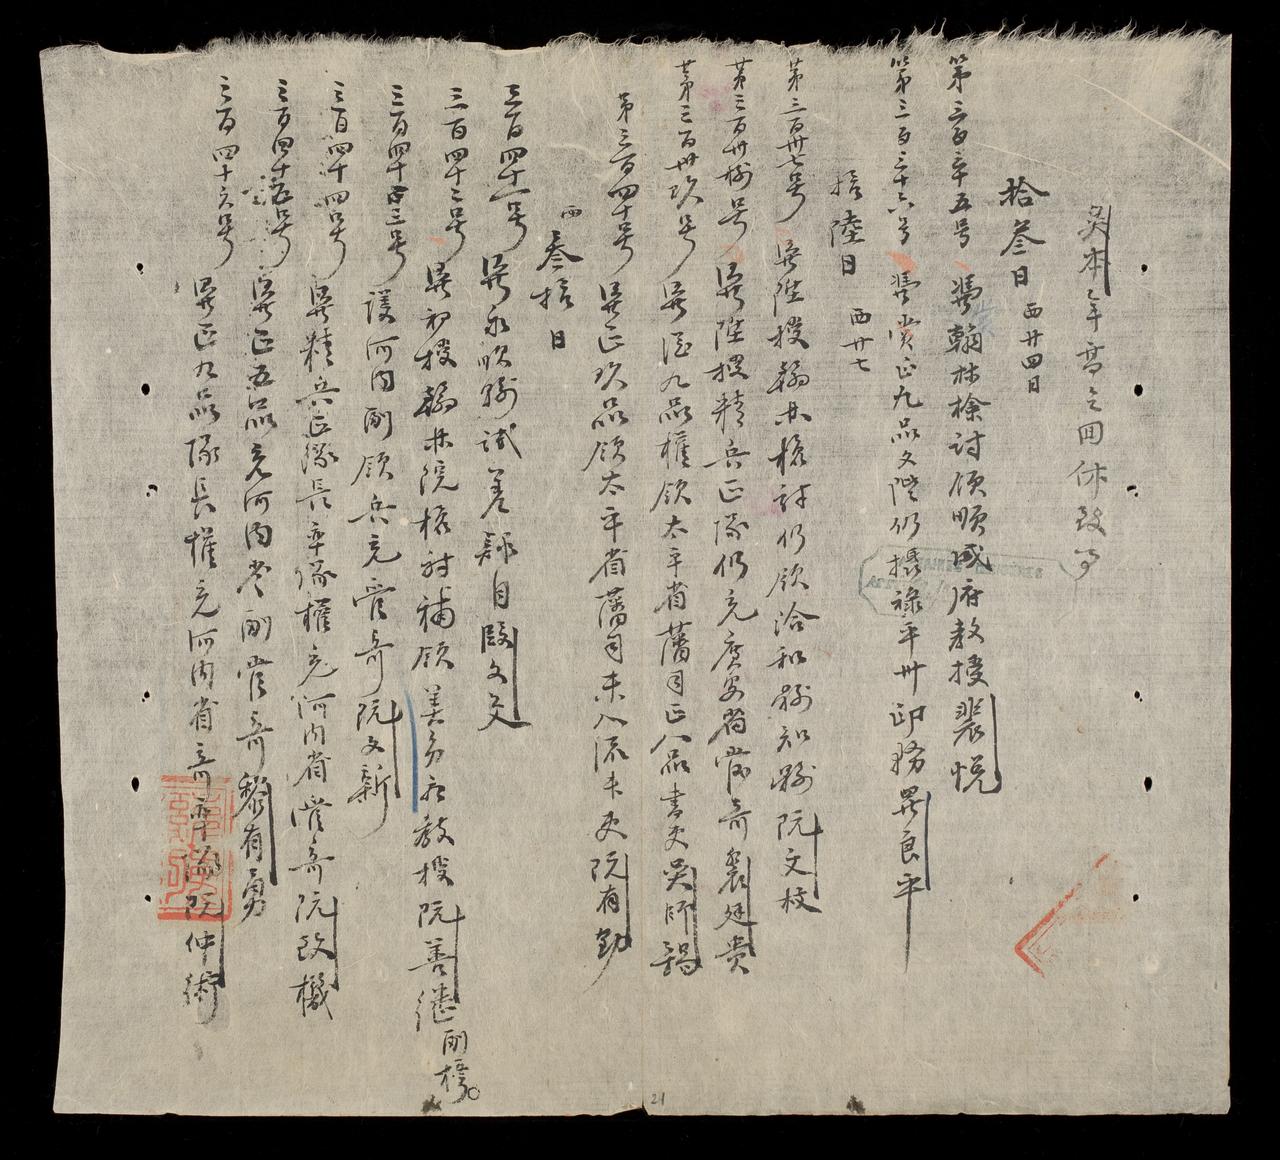 吳本年高乞回休致事
拾叁日 西廿四日
第三百三十五号 憑翰林檢討領順成府教授裴悦
第三百三十六号 憑賞正九品文階仍攝祿平州印務吳良平
拾陸日 西廿七
第三百卅七号 憑陞授翰林檢討仍領洽和縣知縣阮文枝
第三百卅捌号 憑陞授精兵正隊仍充廣安省管奇裴廷贵
第三百卅玖号 憑從九品權領太平省藩司正八品書吏吳師
第三百四十号 憑正玖品領太平省藩司未入流未吏阮有勤
西 叁拾日
三百四十一号 憑永順縣試差 段文交
三百四十二号 憑初授翰林院檢討補領 美 教授阮善繼副榜
三百四十三号 護河内副領兵充管奇阮文新
三百四十四号 憑精兵正隊長率隊權充河内省管奇阮政機
三百四十五号 憑正五品充河内 副管奇黎有勇
三百四十六号 憑正九品隊長權充河内省奇率隊阮仲術
21